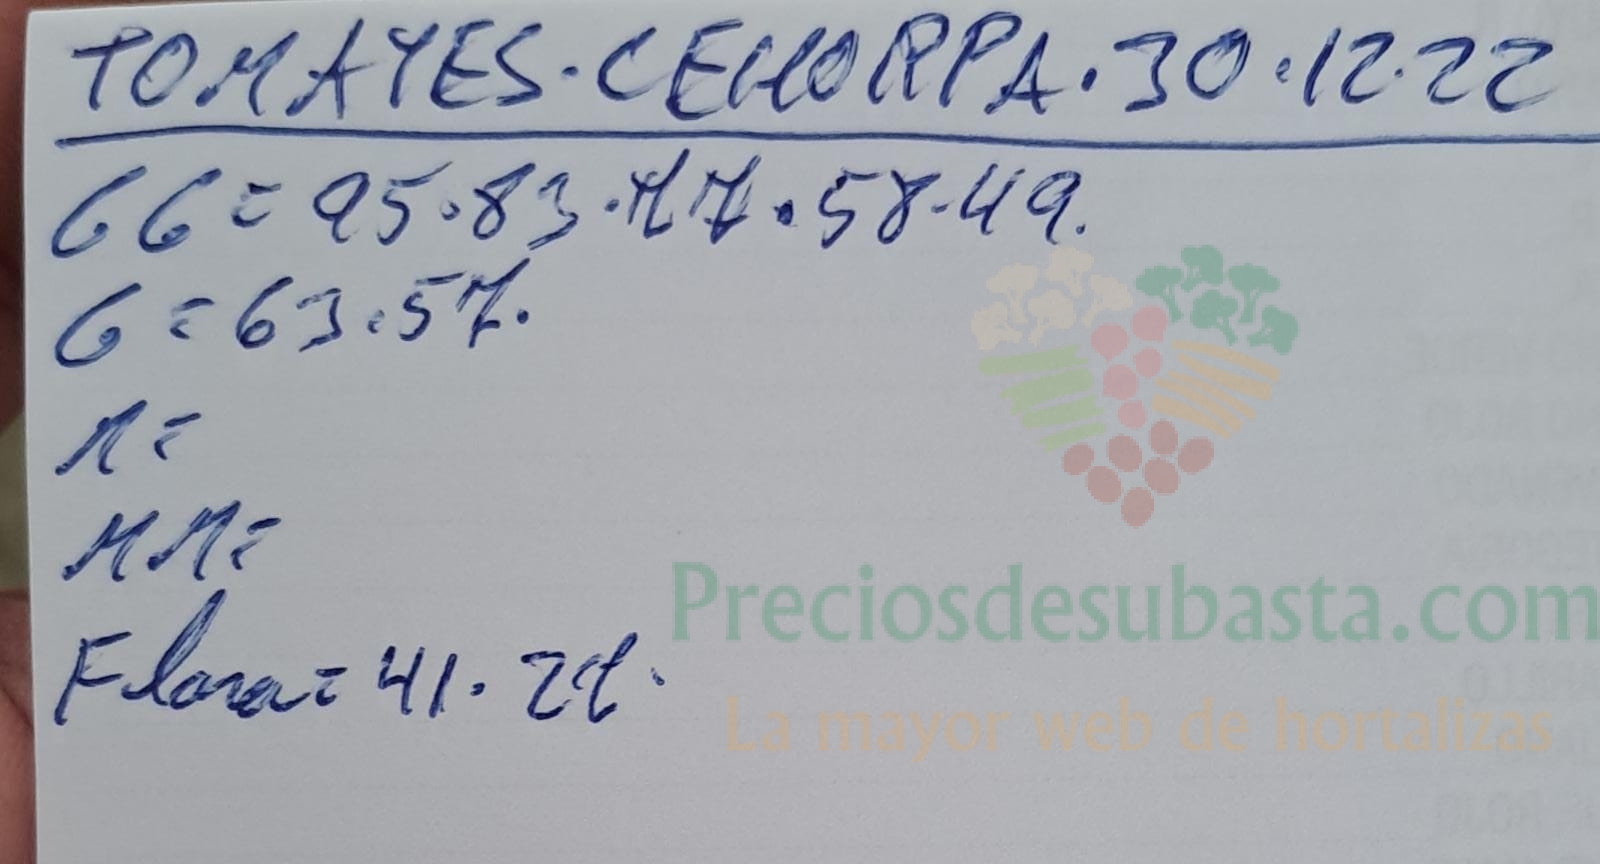 TOMATES.CEHORPA.30.12.22
GG=95.83.77.58.49.
G=63.57.
M=
MM=
Flora=41.27.
Preciosdesubasta.com
La mayor web de hortalizas